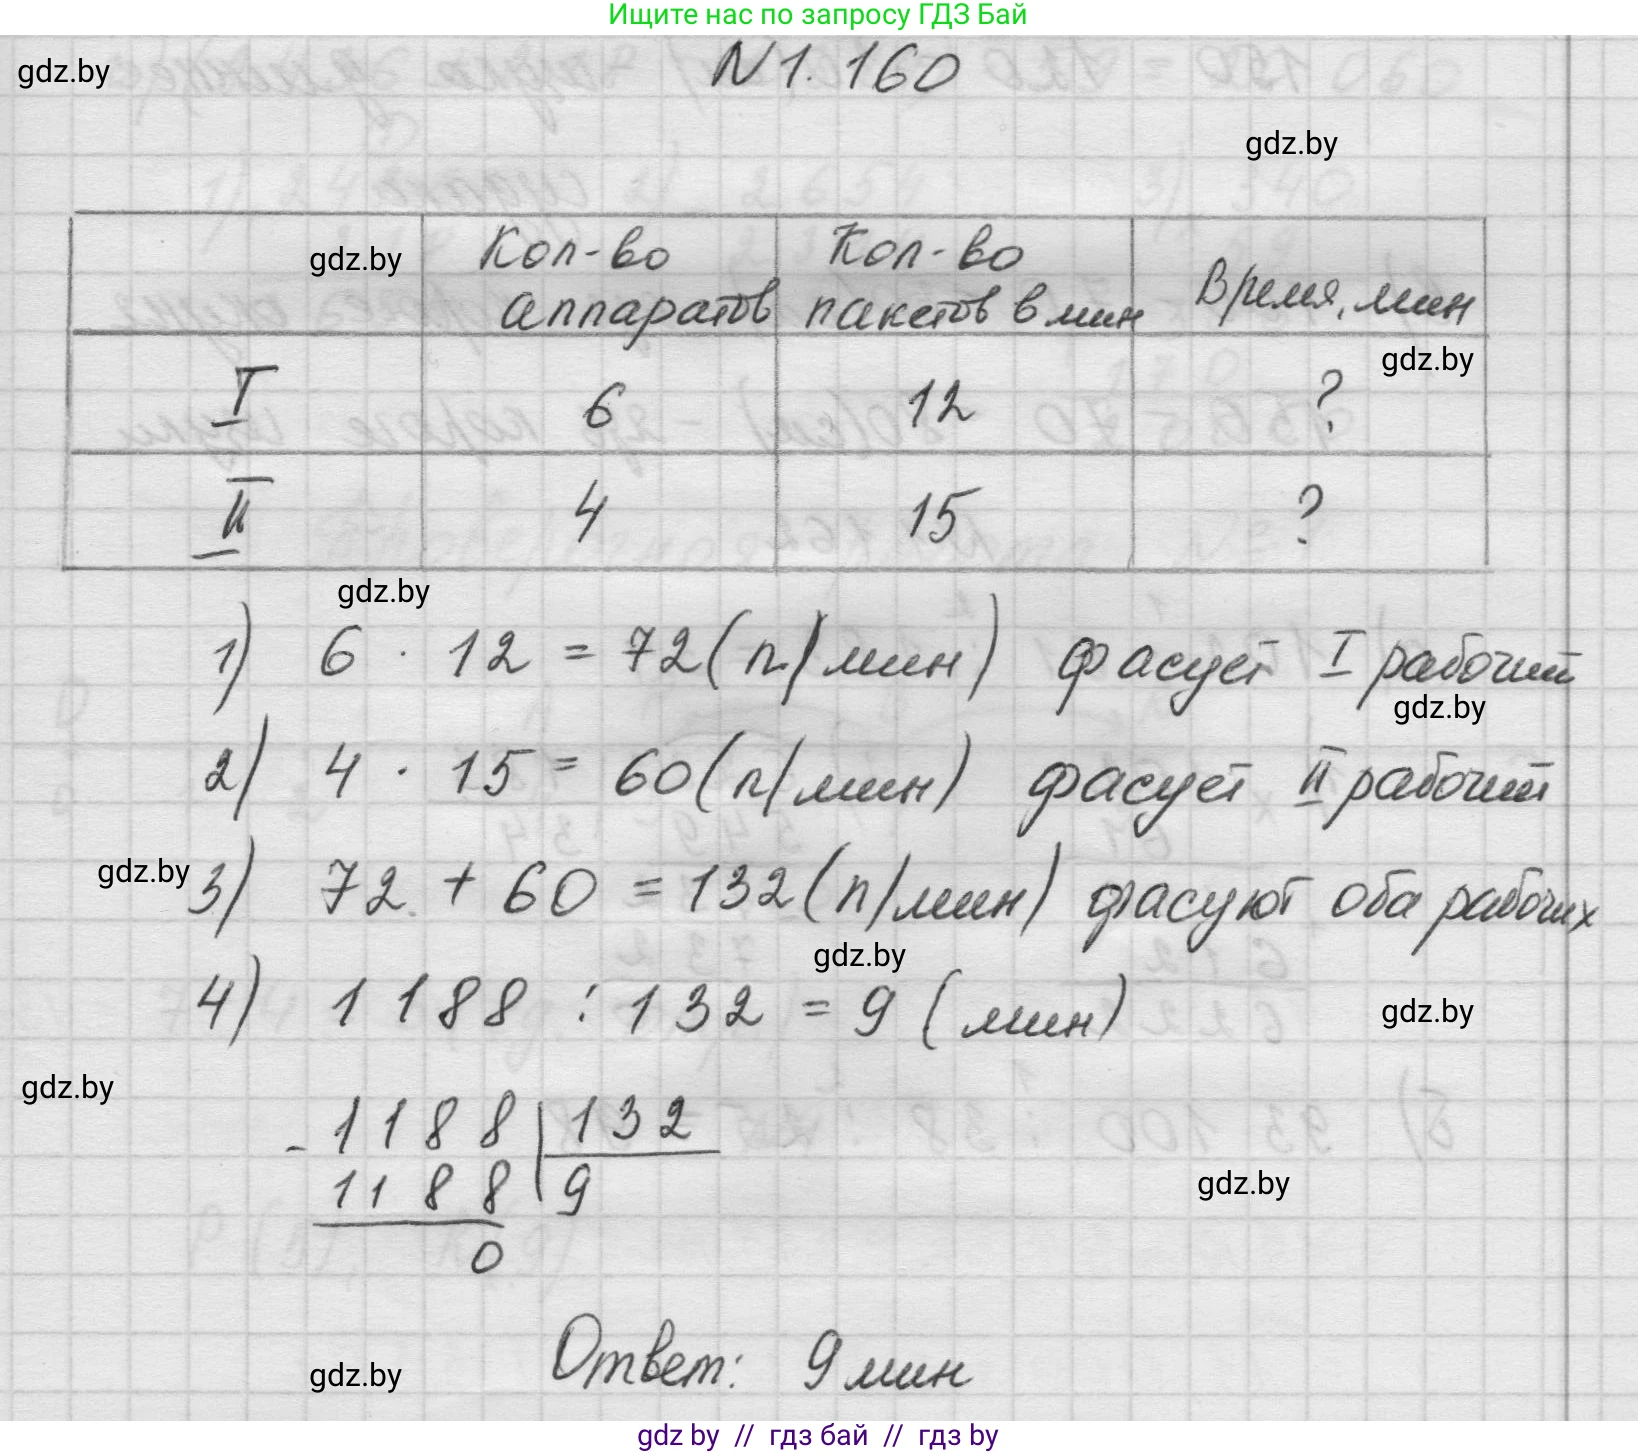 Ищите нас по запросу ГДЗ Бай
N 1. 160
gdz.by
gdz.by
gdz.by
Кол-во аппаратов
Кол-во пакетов в мин
Время, мин
gdz.by
I 6 12 ?
II 4 15 ?
gdz.by
1) 6 · 12 = 72 (п/мин) фасует I рабочий
gdz.by
2) 4 · 15 = 60 (п/мин) фасует II рабочий
gdz.by
3) 72 + 60 = 132 (п/мин) фасуют оба рабочих
gdz.by
4) 1188 : 132 = 9 (мин)
gdz.by
gdz.by
- 1188 | 132
1188 | 9
gdz.by
0
Ответ: 9 мин
gdz.by
gdz by // гдз бай // гдз by